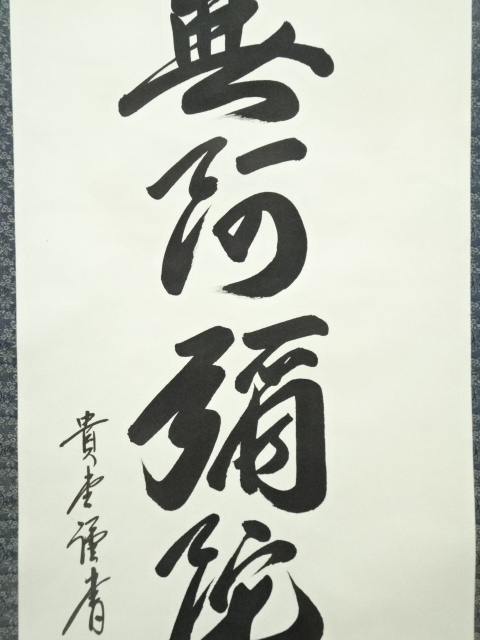 無阿彌陀
貴堂謹書